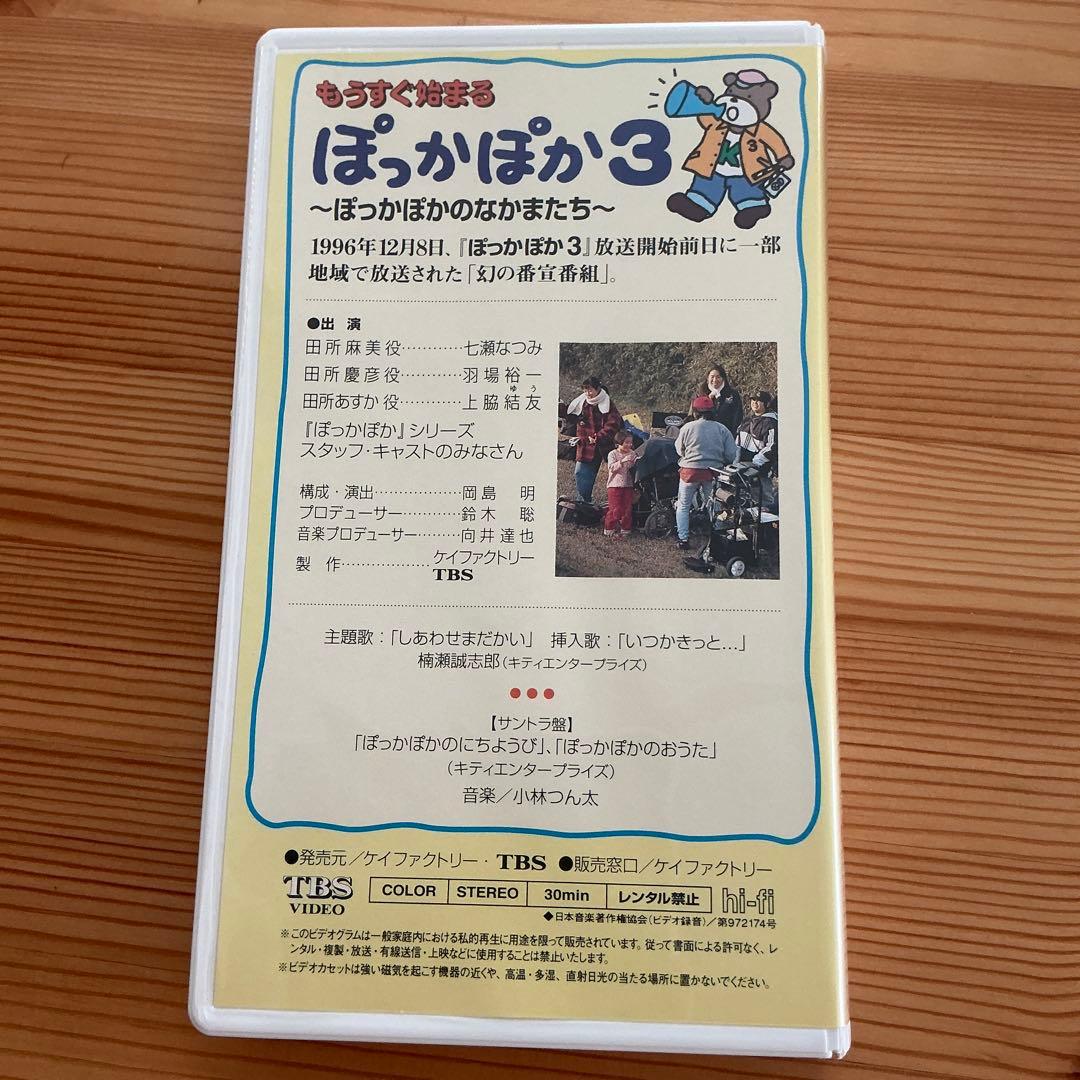 もうすぐ始まる
ぽっかぽか3
～ぽっかぽかのなかまたち～
1996年12月8日、『ぽっかぽか3』放送開始前日に一部
地域で放送された「幻の番宣番組」。
●出 演
田所麻美役…………七瀬なつみ
田所慶彦役…………羽場裕一
ゆう
田所あすか役…………上脇結友
『ぽっかぽか』シリーズ
スタッフ・キャストのみなさん
構成・演出………………岡島 明
プロデューサー…………鈴木 聡
音楽プロデューサー………向井達也
製 作………………ケイファクトリー
TBS
主題歌：「しあわせまだかい」 挿入歌：「いつかきっと…」
楠瀬誠志郎（キティエンタープライズ）
●●●
【サントラ盤】
「ぽっかぽかのにちようび」、「ぽっかぽかのおうた」
（キティエンタープライズ）
音楽／小林つん太
●発売元／ケイファクトリー・TBS ●販売窓口／ケイファクトリー
TBS VIDEO COLOR STEREO 30min レンタル禁止 hi-fi
◆日本音楽著作権協会（ビデオ録音）／第972174号
※このビデオグラムは一般家庭内における私的再生に用途を限って販売されています。従って書面による許可なく、レ
ンタル・複製・放送・有線送信・上映などに使用することは禁止いたします。
※ビデオカセットは強い磁気を起こす機器の近くや、高温・多湿、直射日光の当たる場所に置かないでください。
K
3